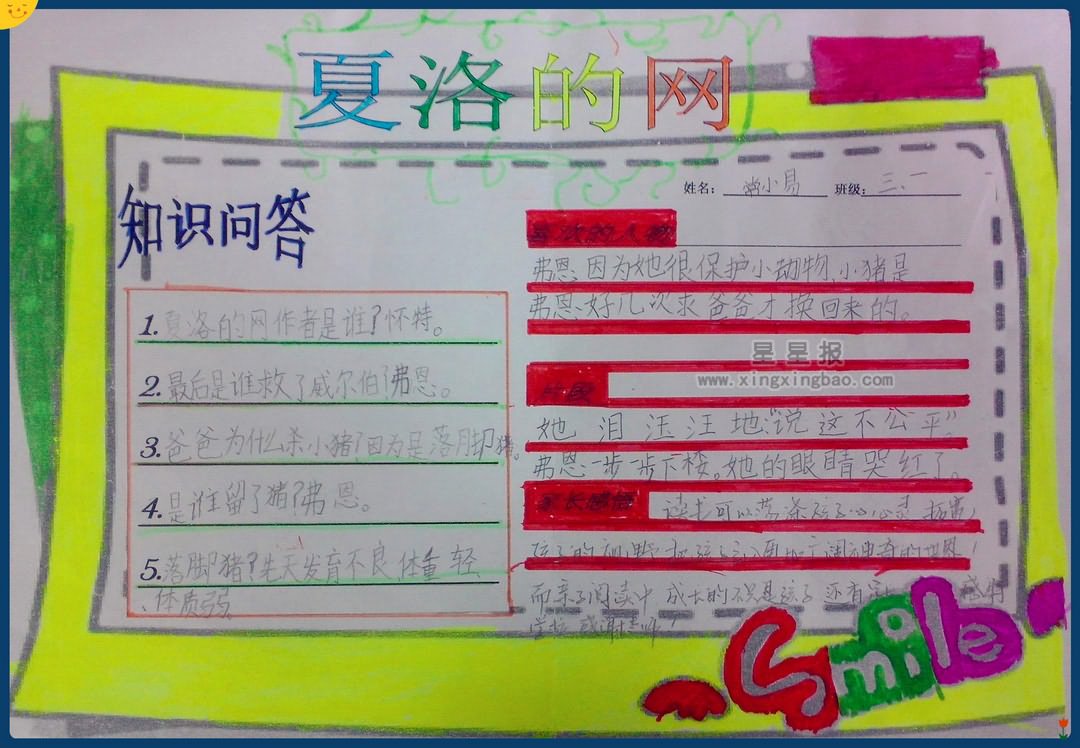 夏洛的网
姓名: 小易 班级: 三、一
知识问答
1. 夏洛的网作者是谁?怀特。
2. 最后是谁救了威尔伯?弗恩。
3. 爸爸为什么杀小猪?因为是落脚猪。
4. 是谁留了猪?弗恩。
5. 落脚猪?先天发育不良,体重轻
、体质弱。
喜欢的人物
弗恩因为她很保护小动物,小猪是
弗恩好几次求爸爸才换回来的。
星星报
www.xingxingbao.com
片段
她泪汪汪地说“这不公平”
弗恩一步一步下楼。她的眼睛哭红了。
家长感悟
读书可以营养孩子心灵
孩子的视野,把孩子 更加广阔神奇的世界!
而亲子阅读中 成长的不只是孩子 还有 感谢
学校 感谢老师!
Smile